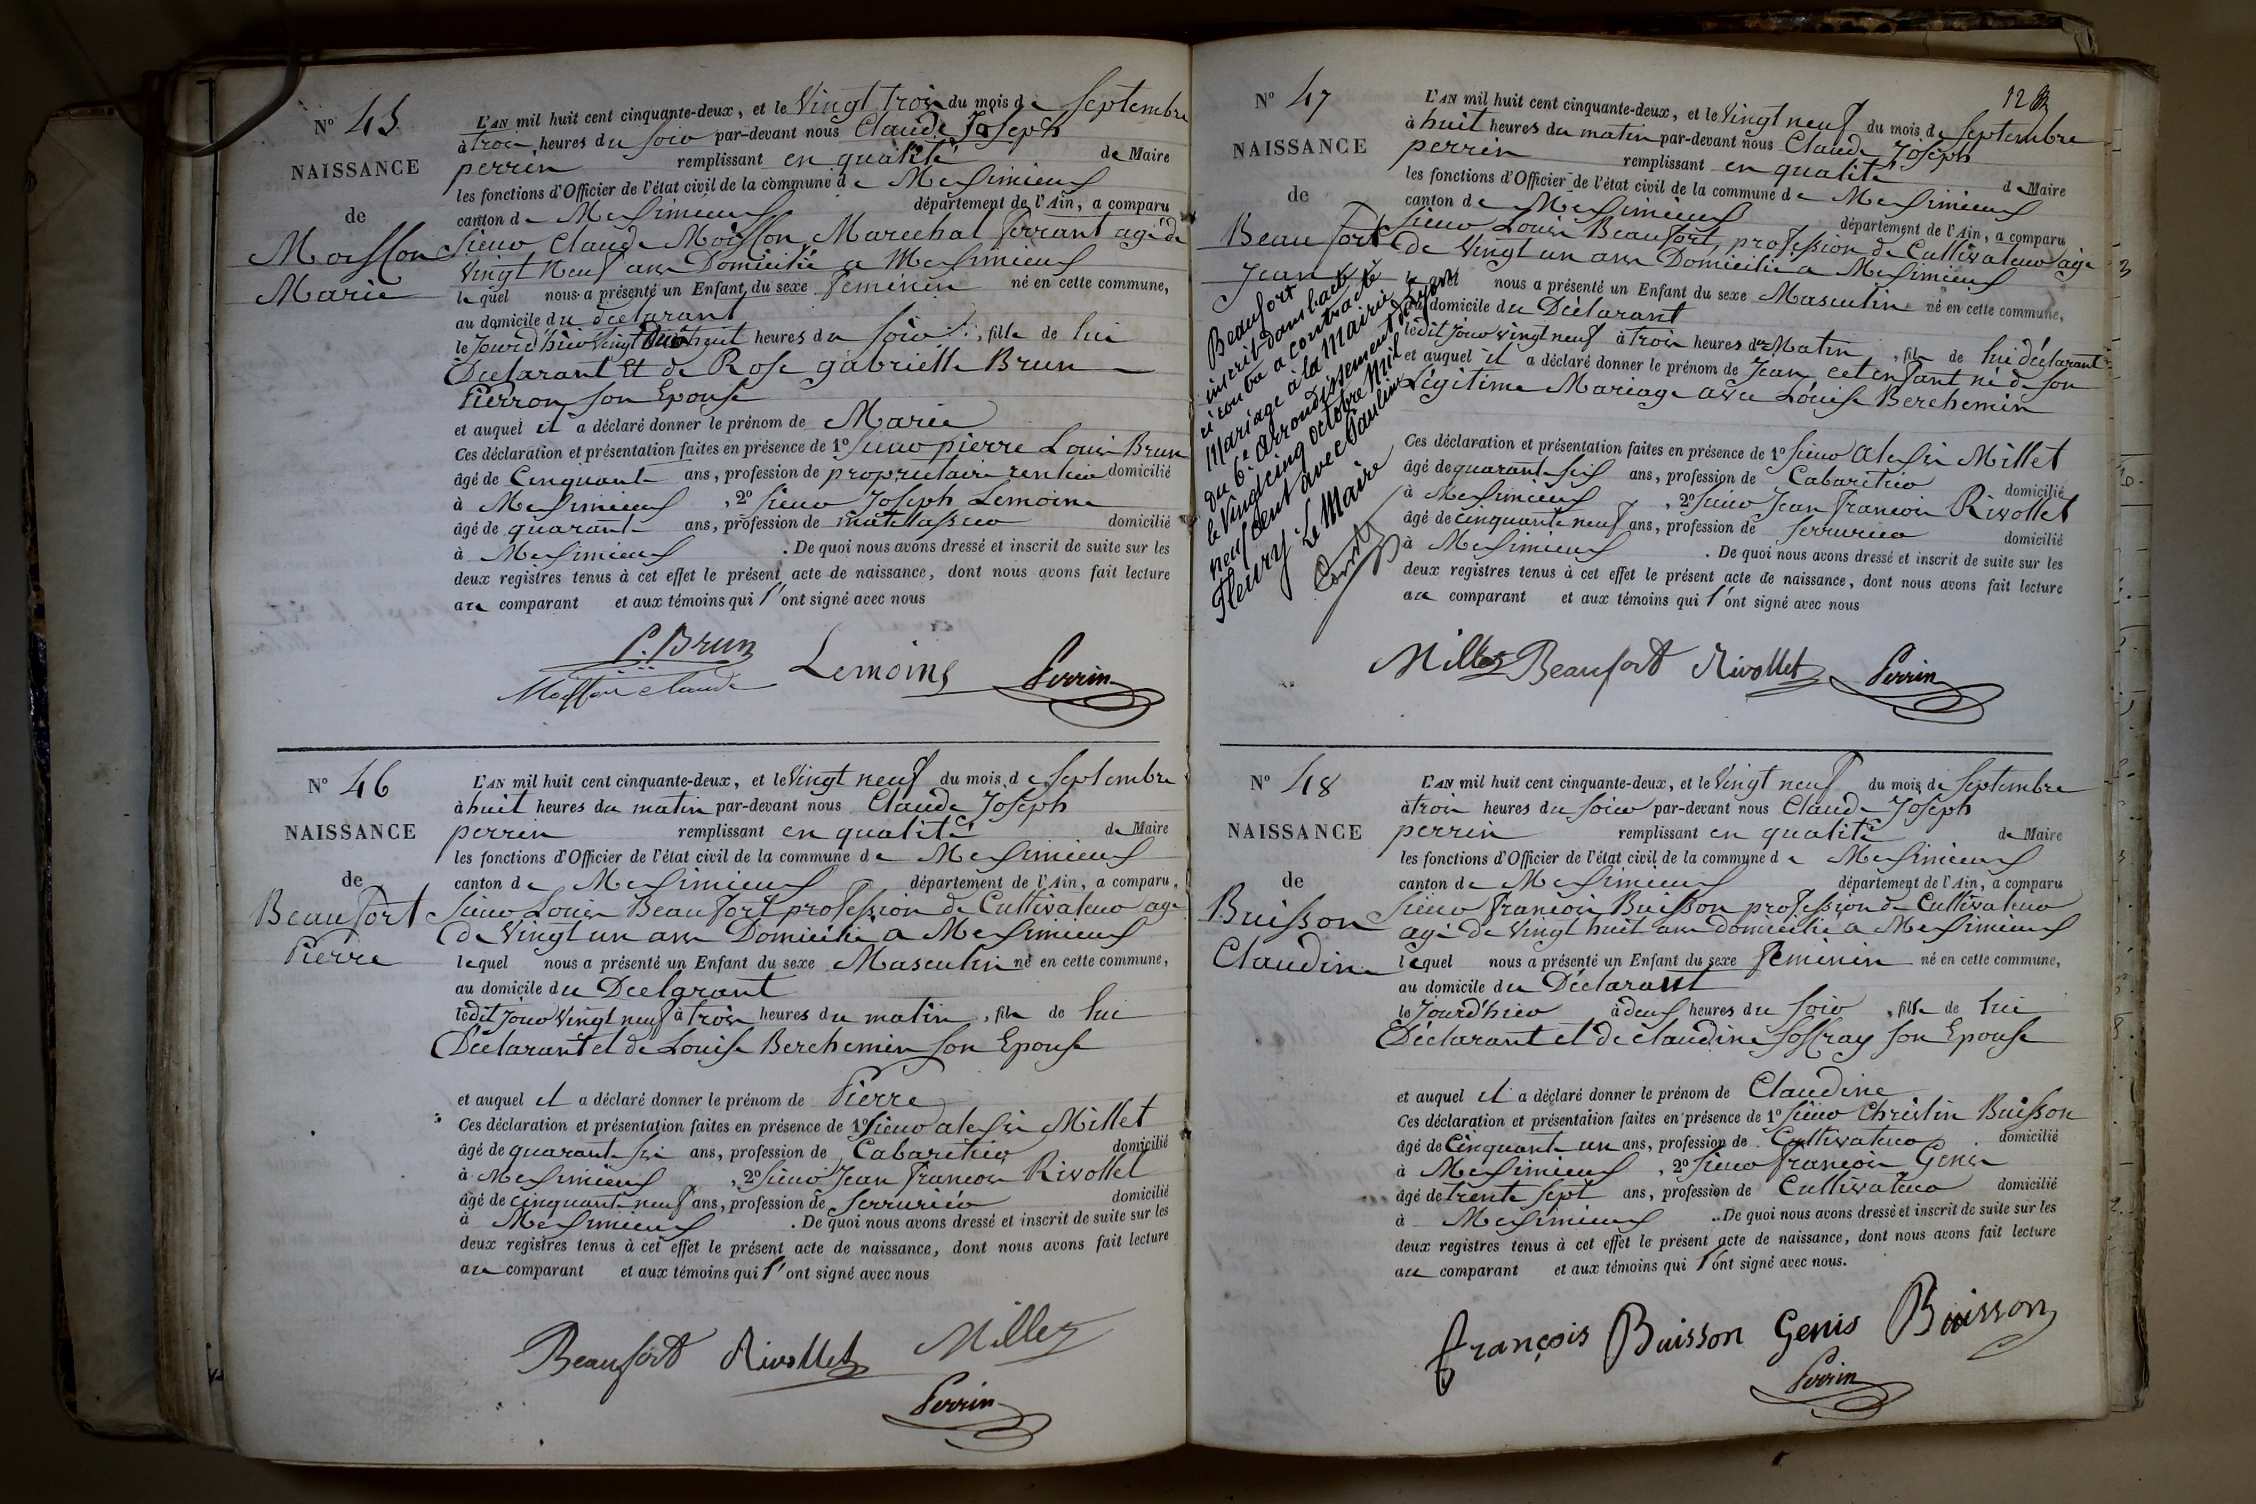 N° 45
NAISSANCE
de
Moisson
Marie
L'AN mil huit cent cinquante-deux, et le Vingt trois du mois de Septembre
à trois heures du soir par-devant nous Claude Joseph
perrin remplissant en qualité de Maire
les fonctions d'Officier de l'état civil de la commune de Meximieux
canton de Meximieux département de l'Ain, a comparu
Sieur Claude Moisson Marechal ferrant agé de
Vingt Neuf ans Domicilié a Meximieux
lequel nous a présenté un Enfant du sexe feminin né en cette commune,
au domicile du declarant
le Jourd'hui Vingt heures du soir, fille de lui
Declarant et de Rose gabrielle Brun
Pierron son Epouse
et auquel il a déclaré donner le prénom de Marie
Ces déclaration et présentation faites en présence de 1° Sieur pierre Louis Brun
âgé de Cinquante ans, profession de propriétaire rentier domicilié
à Meximieux, 2° Sieur Joseph Lemoine
âgé de quarante ans, profession de matelassier domicilié
à Meximieux. De quoi nous avons dressé et inscrit de suite sur les
deux registres tenus à cet effet le présent acte de naissance, dont nous avons fait lecture
au comparant et aux témoins qui l'ont signé avec nous
P. Brun
Moisson Claude Lemoine Perrin
N° 46
NAISSANCE
de
Beaufort
Pierre
L'AN mil huit cent cinquante-deux, et le Vingt neuf du mois de Septembre
à huit heures du matin par-devant nous Claude Joseph
perrin remplissant en qualité de Maire
les fonctions d'Officier de l'état civil de la commune de Meximieux
canton de Meximieux département de l'Ain, a comparu,
Sieur Louis Beaufort profession de Cultivateur agé
de Vingt un ans Domicilié a Meximieux
lequel nous a présenté un Enfant du sexe Masculin né en cette commune,
au domicile du Declarant
ledit Jour Vingt neuf à trois heures du matin, fils de lui
Déclarant et de Louise Berchemin son Epouse
et auquel il a déclaré donner le prénom de Pierre
Ces déclaration et présentation faites en présence de 1° Sieur alexis Millet
âgé de quarante six ans, profession de Cabaretier domicilié
à Meximieux, 2° Sieur Jean francois Rivollet
âgé de cinquante neuf ans, profession de Serrurier domicilié
à Meximieux. De quoi nous avons dressé et inscrit de suite sur les
deux registres tenus à cet effet le présent acte de naissance, dont nous avons fait lecture
au comparant et aux témoins qui l'ont signé avec nous
Beaufort Rivollet Millet
Perrin
12
N° 47
NAISSANCE
de
Beaufort
Jean
Beaufort
inscrit dans l'acte
ci contre a contracté
Mariage à la Mairie
du 6e Arrondissement
le Vingt cinq octobre Mil
neuf cent avec Pauline
Fleury. Le Maire
L'AN mil huit cent cinquante-deux, et le Vingt neuf du mois de Septembre
à huit heures du matin par-devant nous Claude Joseph
perrin remplissant en qualité de Maire
les fonctions d'Officier de l'état civil de la commune de Meximieux
canton de Meximieux département de l'Ain, a comparu
Sieur Louis Beaufort, profession de Cultivateur agé
de Vingt un ans Domicilié a Meximieux
lequel nous a présenté un Enfant du sexe Masculin né en cette commune,
au domicile du Déclarant
ledit Jour Vingt neuf à trois heures du Matin, fils de lui déclarant
et auquel il a déclaré donner le prénom de Jean cet enfant né de son
Légitime Mariage avec Louise Berchemin
Ces déclaration et présentation faites en présence de 1° Sieur alexis Millet
âgé de quarante six ans, profession de Cabaretier domicilié
à Meximieux, 2° Sieur Jean francois Rivollet
âgé de cinquante neuf ans, profession de Serrurier domicilié
à Meximieux. De quoi nous avons dressé et inscrit de suite sur les
deux registres tenus à cet effet le présent acte de naissance, dont nous avons fait lecture
au comparant et aux témoins qui l'ont signé avec nous
Millet Beaufort Rivollet Perrin
N° 48
NAISSANCE
de
Buisson
Claudine
L'AN mil huit cent cinquante-deux, et le Vingt neuf du mois de Septembre
à trois heures du soir par-devant nous Claude Joseph
perrin remplissant en qualité de Maire
les fonctions d'Officier de l'état civil de la commune de Meximieux
canton de Meximieux département de l'Ain, a comparu
Sieur francois Buisson profession de Cultivateur
agé de Vingt huit ans domicilié a Meximieux
lequel nous a présenté un Enfant du sexe feminin né en cette commune,
au domicile du Déclarant
le Jourd'hui à deux heures du soir, fille de lui
Déclarant et de claudine Soffray son Epouse
et auquel il a déclaré donner le prénom de Claudine
Ces déclaration et présentation faites en présence de 1° Sieur Christin Buisson
âgé de Cinquante un ans, profession de Cultivateur domicilié
à Meximieux, 2° Sieur francois Genis
âgé de trente Sept ans, profession de Cultivateur domicilié
à Meximieux. De quoi nous avons dressé et inscrit de suite sur les
deux registres tenus à cet effet le présent acte de naissance, dont nous avons fait lecture
au comparant et aux témoins qui l'ont signé avec nous.
françois Buisson Genis Buisson
Perrin